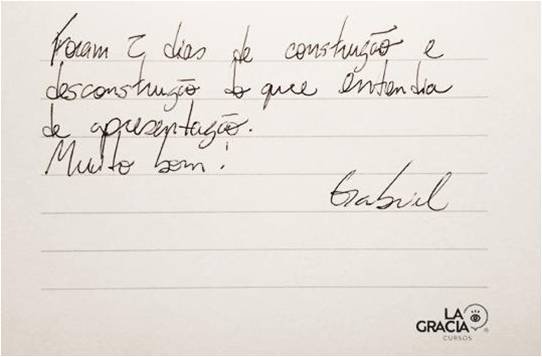 Foram 2 dias de construção e
desconstrução do que entendia
de apresentação.
Muito bom!
Gabriel
LA
GRACIA
CURSOS